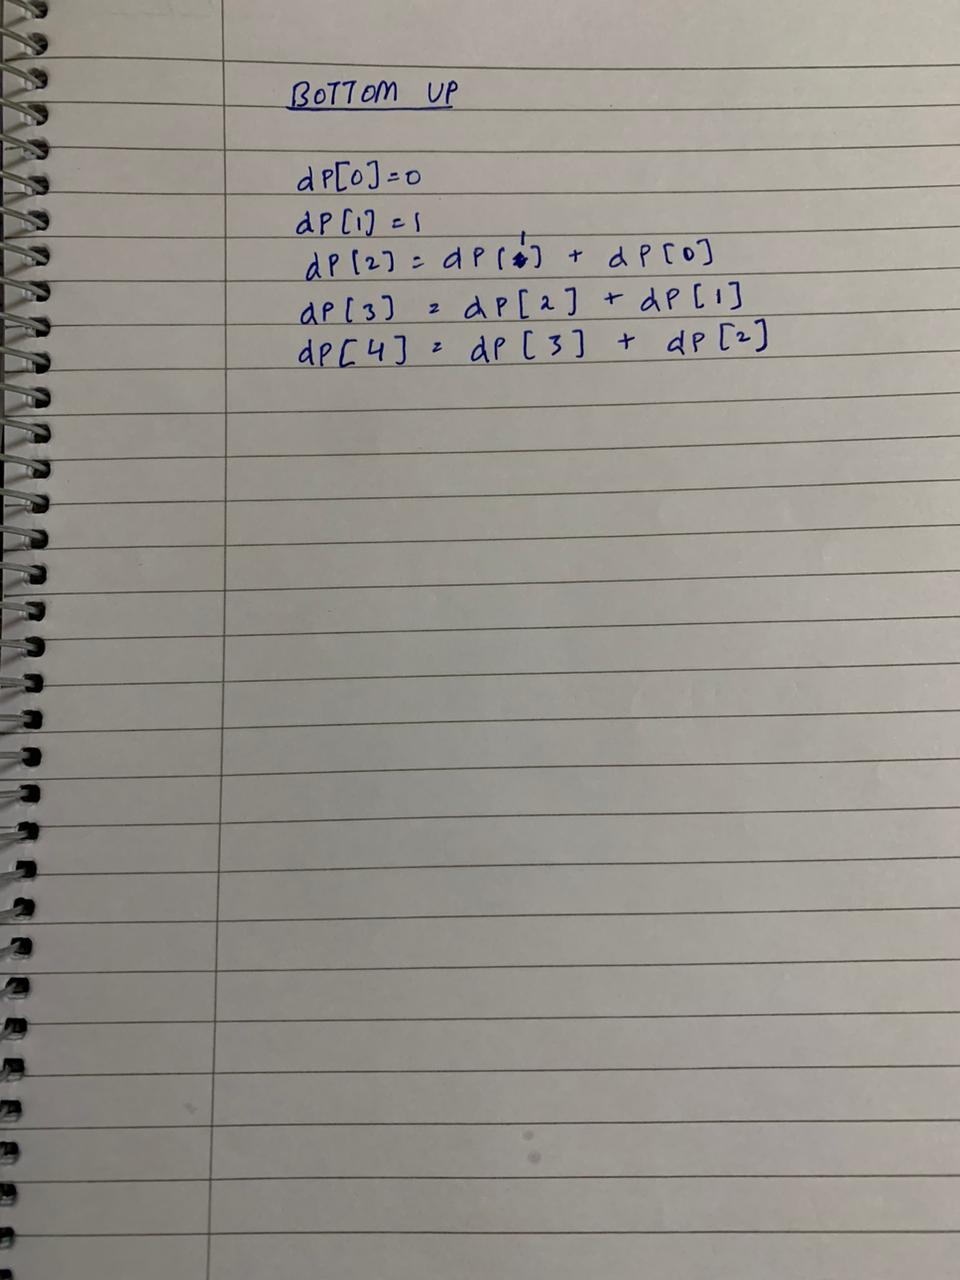 BOTTOM UP
dP[0]=0
dP[1] = 1
dP[2] = dP[1] + dP[0]
dP[3] = dP[2] + dP[1]
dP[4] = dP[3] + dP[2]